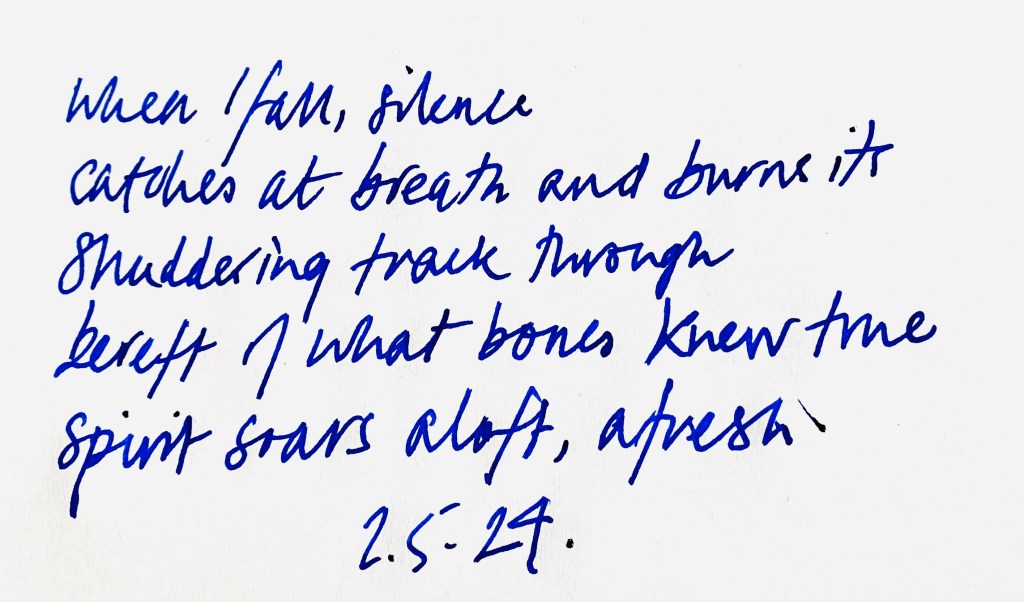 when I fall, silence
catches at breath and burns its
shuddering track through
bereft of what bones knew true
spirit soars aloft, afresh
2.5.24.